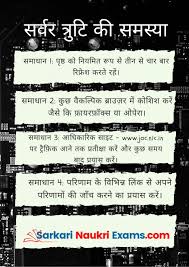 सर्वर त्रुटि की समस्या
समाधान 1: पृष्ठ को नियमित रूप से तीन से चार बार
रिफ्रेश करते रहें।
समाधान 2: कुछ वैकल्पिक ब्राउज़र में कोशिश करें
जैसे कि फ़ायरफ़ॉक्स या ओपेरा।
समाधान 3: आधिकारिक साइट - www.jac.nic.in
पर ट्रैफ़िक आने तक प्रतीक्षा करें और कुछ समय
बाद प्रयास करें।
समाधान 4: परिणाम के विभिन्न लिंक से अपने
परिणामों की जाँच करने का प्रयास करें।
Sarkari Naukri Exams.com